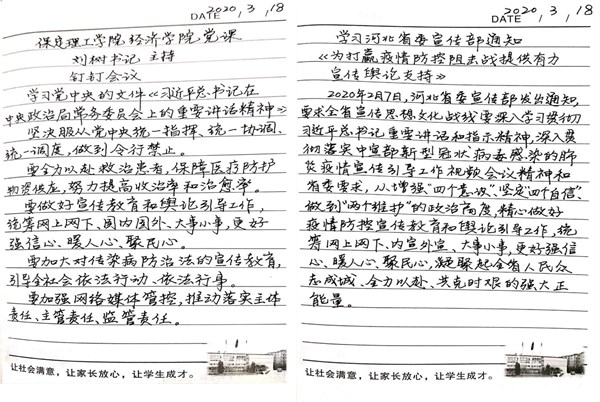 DATE 2020, 3, 18
保定理工学院经济学院党课
刘树书记 主持
钉钉会议
学习党中央的文件《习近平总书记在
中央政治局常务委员会上的重要讲话精神》
坚决服从党中央统一指挥、统一协调、
统一调度,做到令行禁止。
要全力以赴救治患者,保障医疗防护
物资供应,努力提高收治率和治愈率。
要做好宣传教育和舆论引导工作,
统筹网上网下、国内国外、大事小事,更好
强信心、暖人心、聚民心。
要加大对传染病防治法的宣传教育,
引导全社会依法行动、依法行事。
要加强网络媒体管控,推动落实主体
责任、主管责任、监管责任。
让社会满意,让家长放心,让学生成才。
DATE 2020, 3, 18
学习河北省委宣传部通知
《为打赢疫情防控阻击战提供有力
宣传舆论支持》
2020年2月7日,河北省委宣传部发出通知,
要求全省宣传思想文化战线要深入学习贯彻
习近平总书记重要讲话和指示精神,深入贯
彻落实中宣部新型冠状病毒感染的肺
炎疫情宣传引导工作视频会议精神和
省委要求,从增强"四个意识"、坚定"四个自信"、
做到"两个维护"的政治高度,精心做好
疫情防控宣传教育和舆论引导工作,统
筹网上网下、内宣外宣、大事小事,更好强信
心、暖人心、聚民心,凝聚起全省人民众
志成城、全力以赴、共克时艰的强大正
能量。
让社会满意,让家长放心,让学生成才。